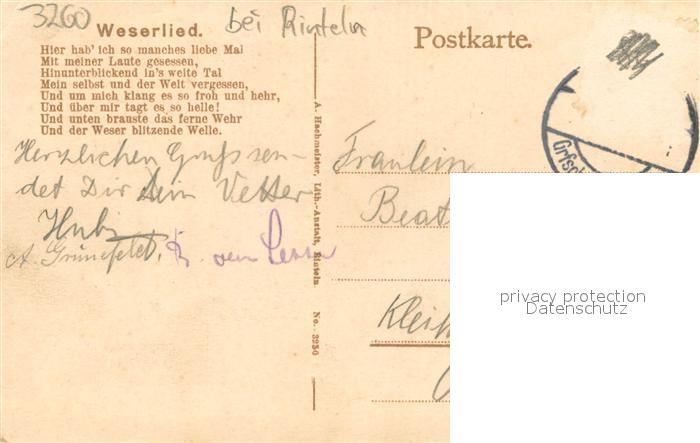 3260
bei Rinteln
Weserlied.
Hier hab' ich so manches liebe Mal
Mit meiner Laute gesessen,
Hinunterblickend in's weite Tal
Mein selbst und der Welt vergessen,
Und um mich klang es so froh und hehr,
Und über mir tagt es so helle!
Und unten brauste das ferne Wehr
Und der Weser blitzende Welle.
Herzlichen Gruß sen-
det Dir Dein Vetter
A. Grünefeld.
A. Hachmeister, Lith.-Anstalt, Rinteln. No. 3950
Postkarte.
Fräulein
Beat
Klei
privacy protection
Datenschutz